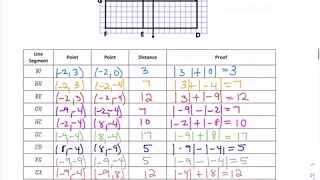 G
F E D
Line Segment Point Point Distance Proof
(-2, 3) (-2, 0) 3 |3|+|0|=3
(-2, 3) (-2, -4) 7 |3|+|-4|=7
(-2, 3) (-2, -9) 12 |3|+|-9|=12
(-9, -4) (-2, -4) 7 |-9|-|-2|=7
HC (-2, -4) (8, -4) 10 |-2|+|8|=10
GC (-9, -4) (8, -4) 17 |-9|+|8|=17
CD (8, -4) (8, -9) 5 |-9|-|-4|=5
FG (-9, -9) (-9, -4) 5 |-9|-|-4|=5
(-9, -4) 12 |-4|+|8|=12